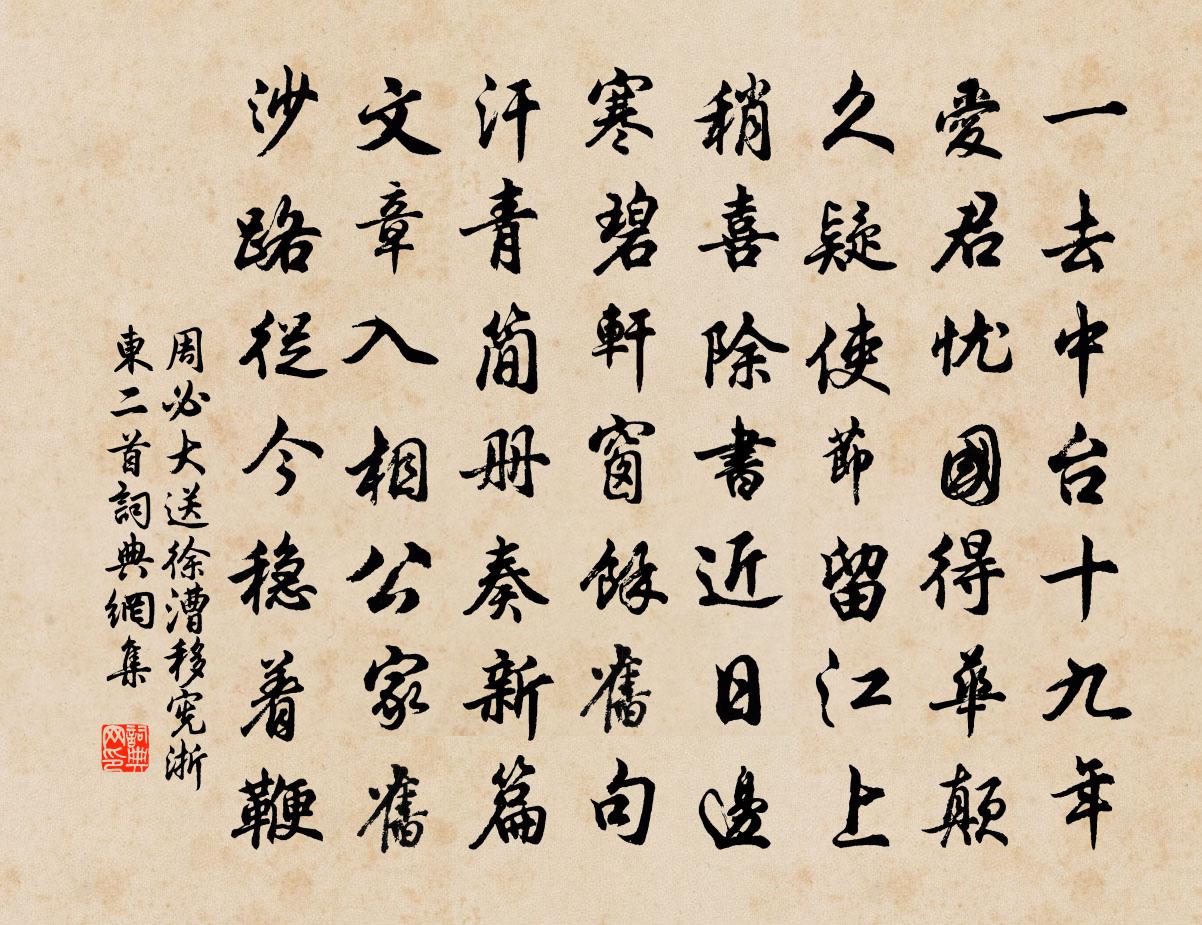 一去中台十九年
愛君忧國得華顛
久疑使節留江上
稍喜除書近日邊
寒碧軒窗餘舊句
汗青简册奏新篇
文章入相公家舊
沙路從今穏着鞭
周必大送徐漕移宪浙
東二首詞典網集
詞典网印